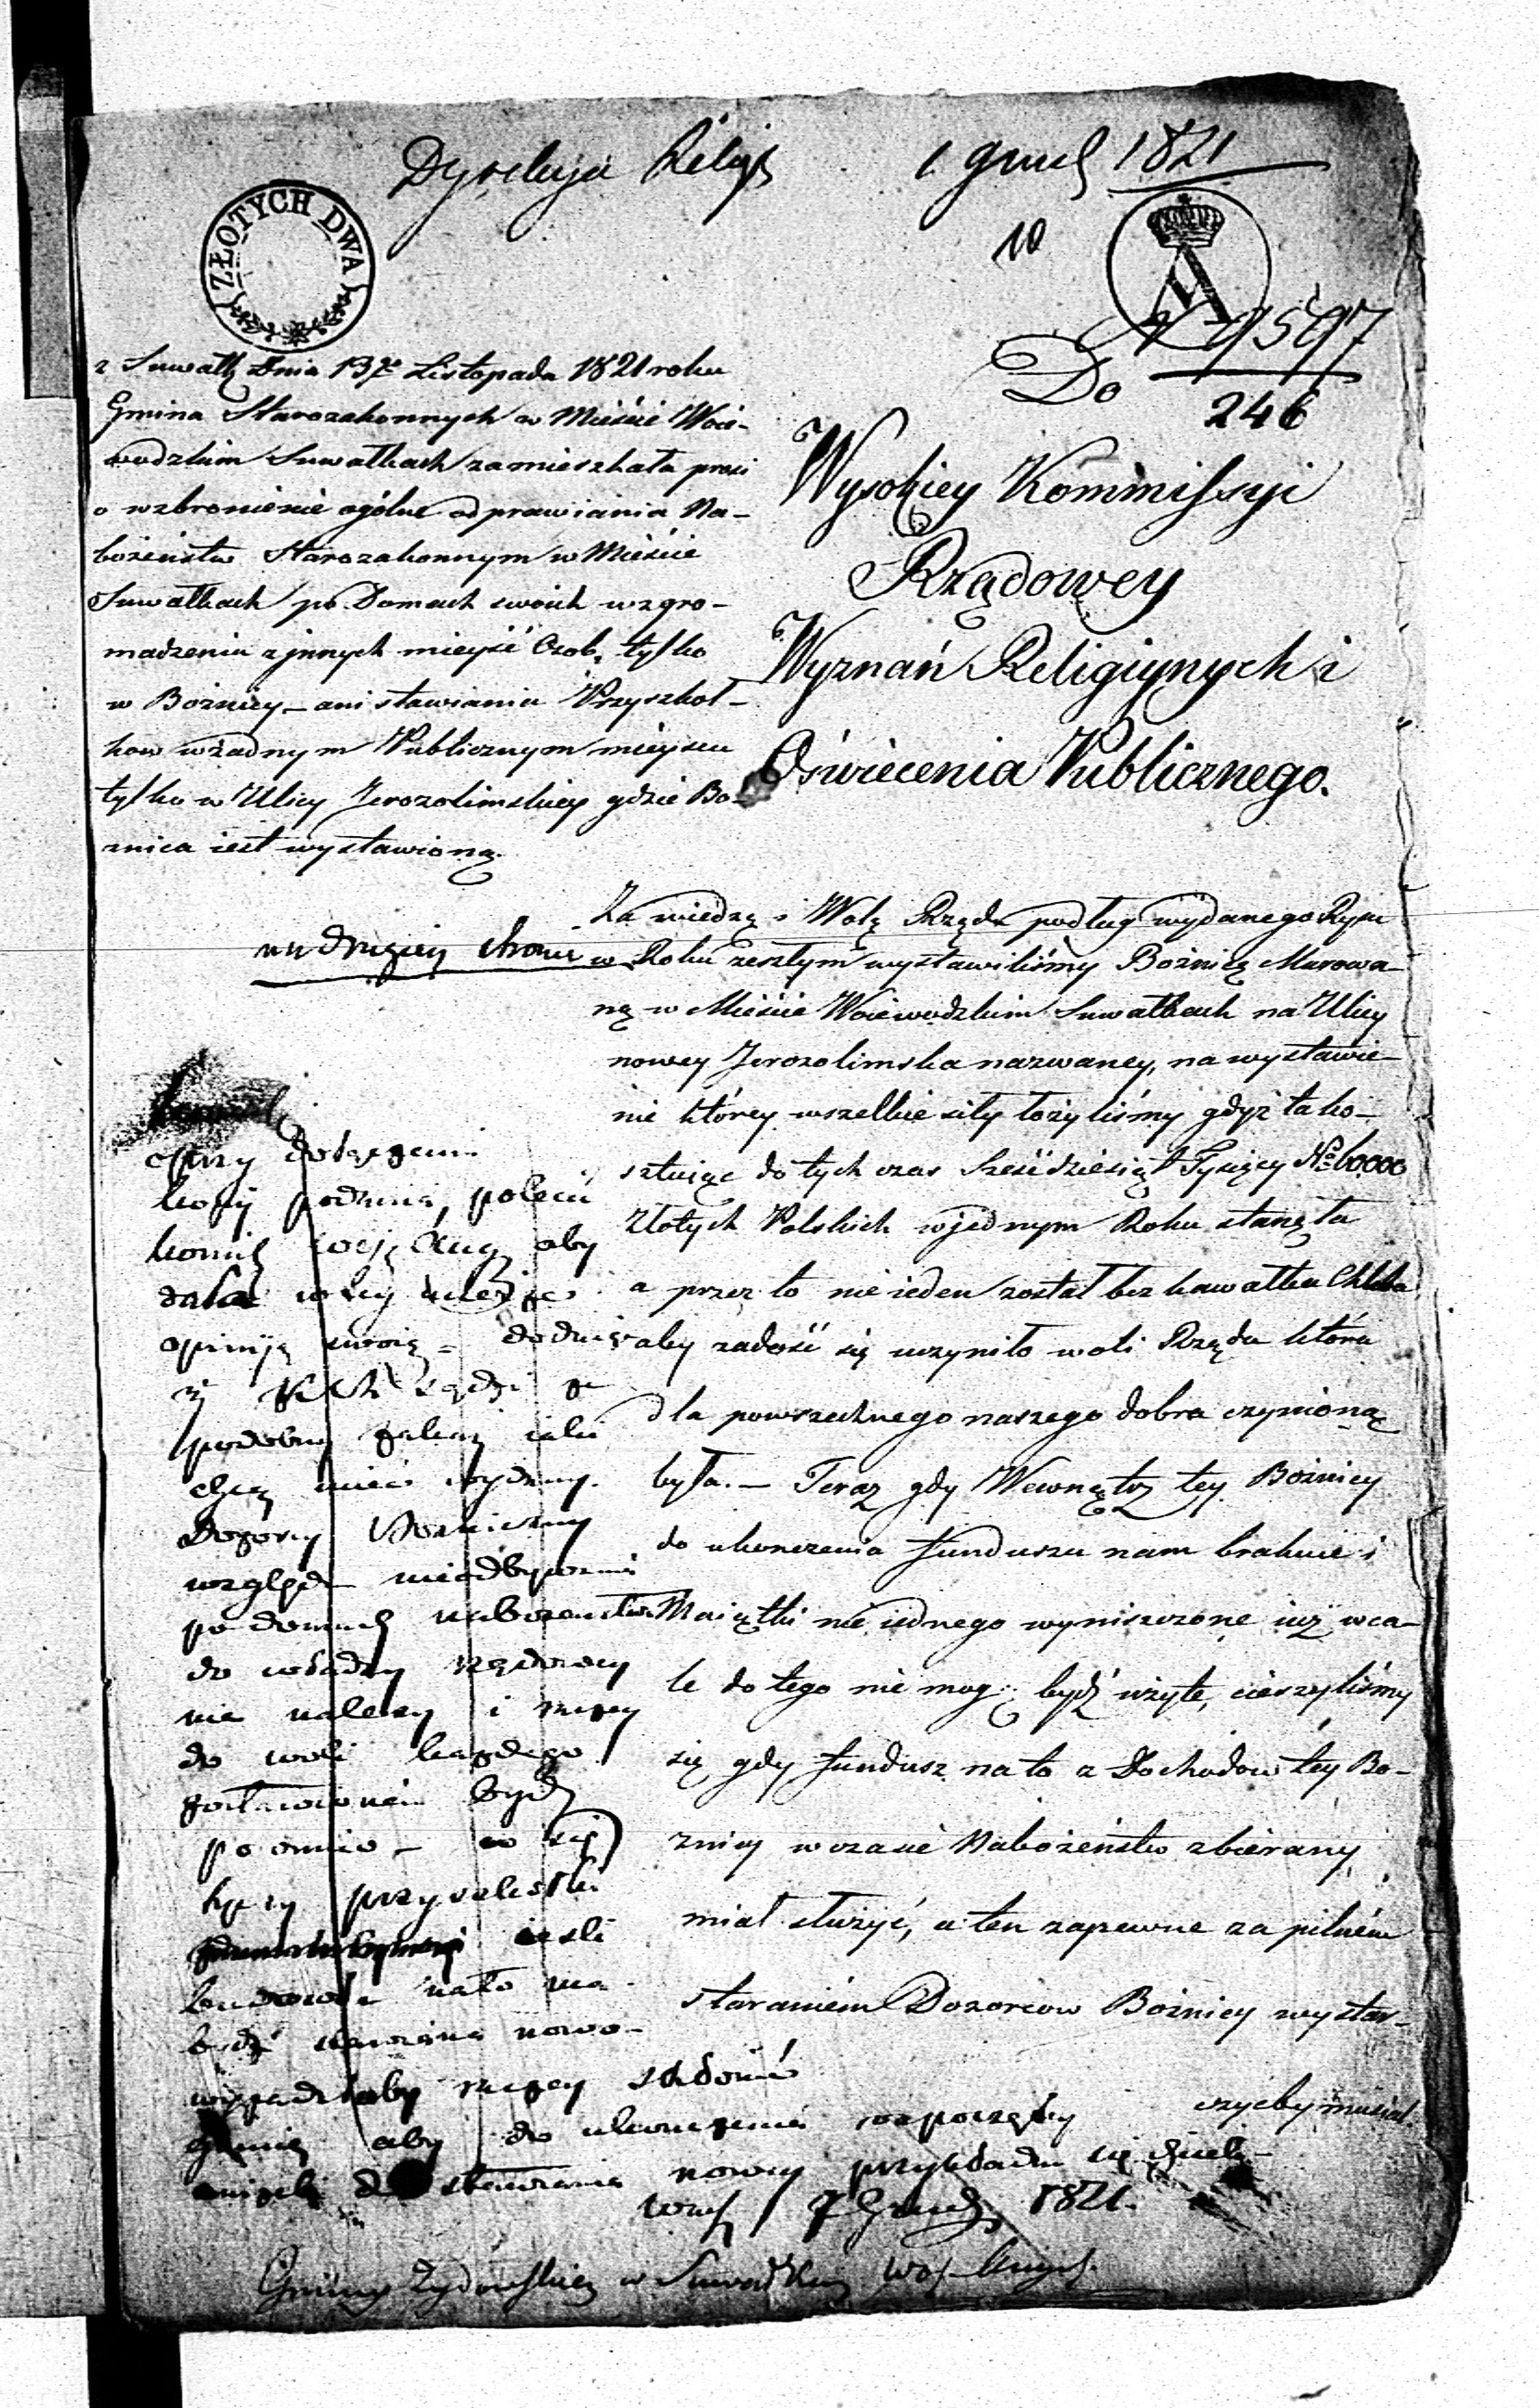 Dyrekcya Religij 1 Grud 1821
10
ZŁOTYCH DWA
A
N 9597
246
z Suwałk Dnia 13go Listopada 1821 roku
Gmina Starozakonnych w Mieście Woie-
wodzkim Suwałkach zamieszkała prosi
o wzbronienie ogólne odprawiania Na-
bożeństw Starozakonnym w Mieście
Suwałkach po Domach swoich w zgro-
madzeniu z jnnych mieysć Osob, tylko
w Bożnicy – ani stawiania Przyszkoł-
kow w żadnym Publicznym mieyscu
tylko w Ulicy Jerozolimskiey gdzie Bo-
znica iest wystawioną.
Do
Wysokiey Kommissyi
Rządowey
Wyznań Religiynych i
Oświecenia Publicznego.
Za wiedzą i Wolą Rządu podług wydanego Rysu
w Roku zeszłym wystawiliśmy Bożnicę Murowa-
ną w Mieście Woiewodzkim Suwałkach na Ulicy
nowey Jerozolimska nazwaney, na wystawie-
nie którey wszelkie siły łożyliśmy gdyż ta ko-
sztuiąc do tych czas Sześćdziesiąt Tysięcy No 60000
Złotych Polskich w jednym Roku stanęła
a przez to nie ieden został bez kawałku Chleba
aby zadość się uczyniło woli Rządu która
dla powszechnego naszego dobra czynioną
była. – Teraz gdy Wewnątrz tey Bożnicy
do ukonczenia funduszu nam brakuie i
Maiątki nie iednego wyniszczone iuż wca-
le do tego nie mogą bydź użyte, cieszyliśmy
się gdy fundusz na to z Dochodow tey Bo-
znicy w czasie Nabożeństw zbierany,
miał służyć, a ten zapewne za pilném
staraniem Dozorcow Bożnicy wystar-
czyćby musiał
na drugiey stronie
Przy dołączeniu
kopij podania, polecić
aby
opinij swoię –
podobny zakaz iaki
chcą mieć wydany
Dozory Bożniczny
względem nieodbywania
po domach nabożenstw
do władzy rządowey
nie należy i
do woli każdego
zostawionem bydź
powinno –
przyszkołki
ieśli
na to ma
bydź stawiana nowo-
raczey skłonić
gminę aby do ukonczenia rozpoczętey
aniżeli do stawiania nowey przykładała się
7 Grud 1821.
Gminy Żydowskiey w Suwałkach Woj. August.